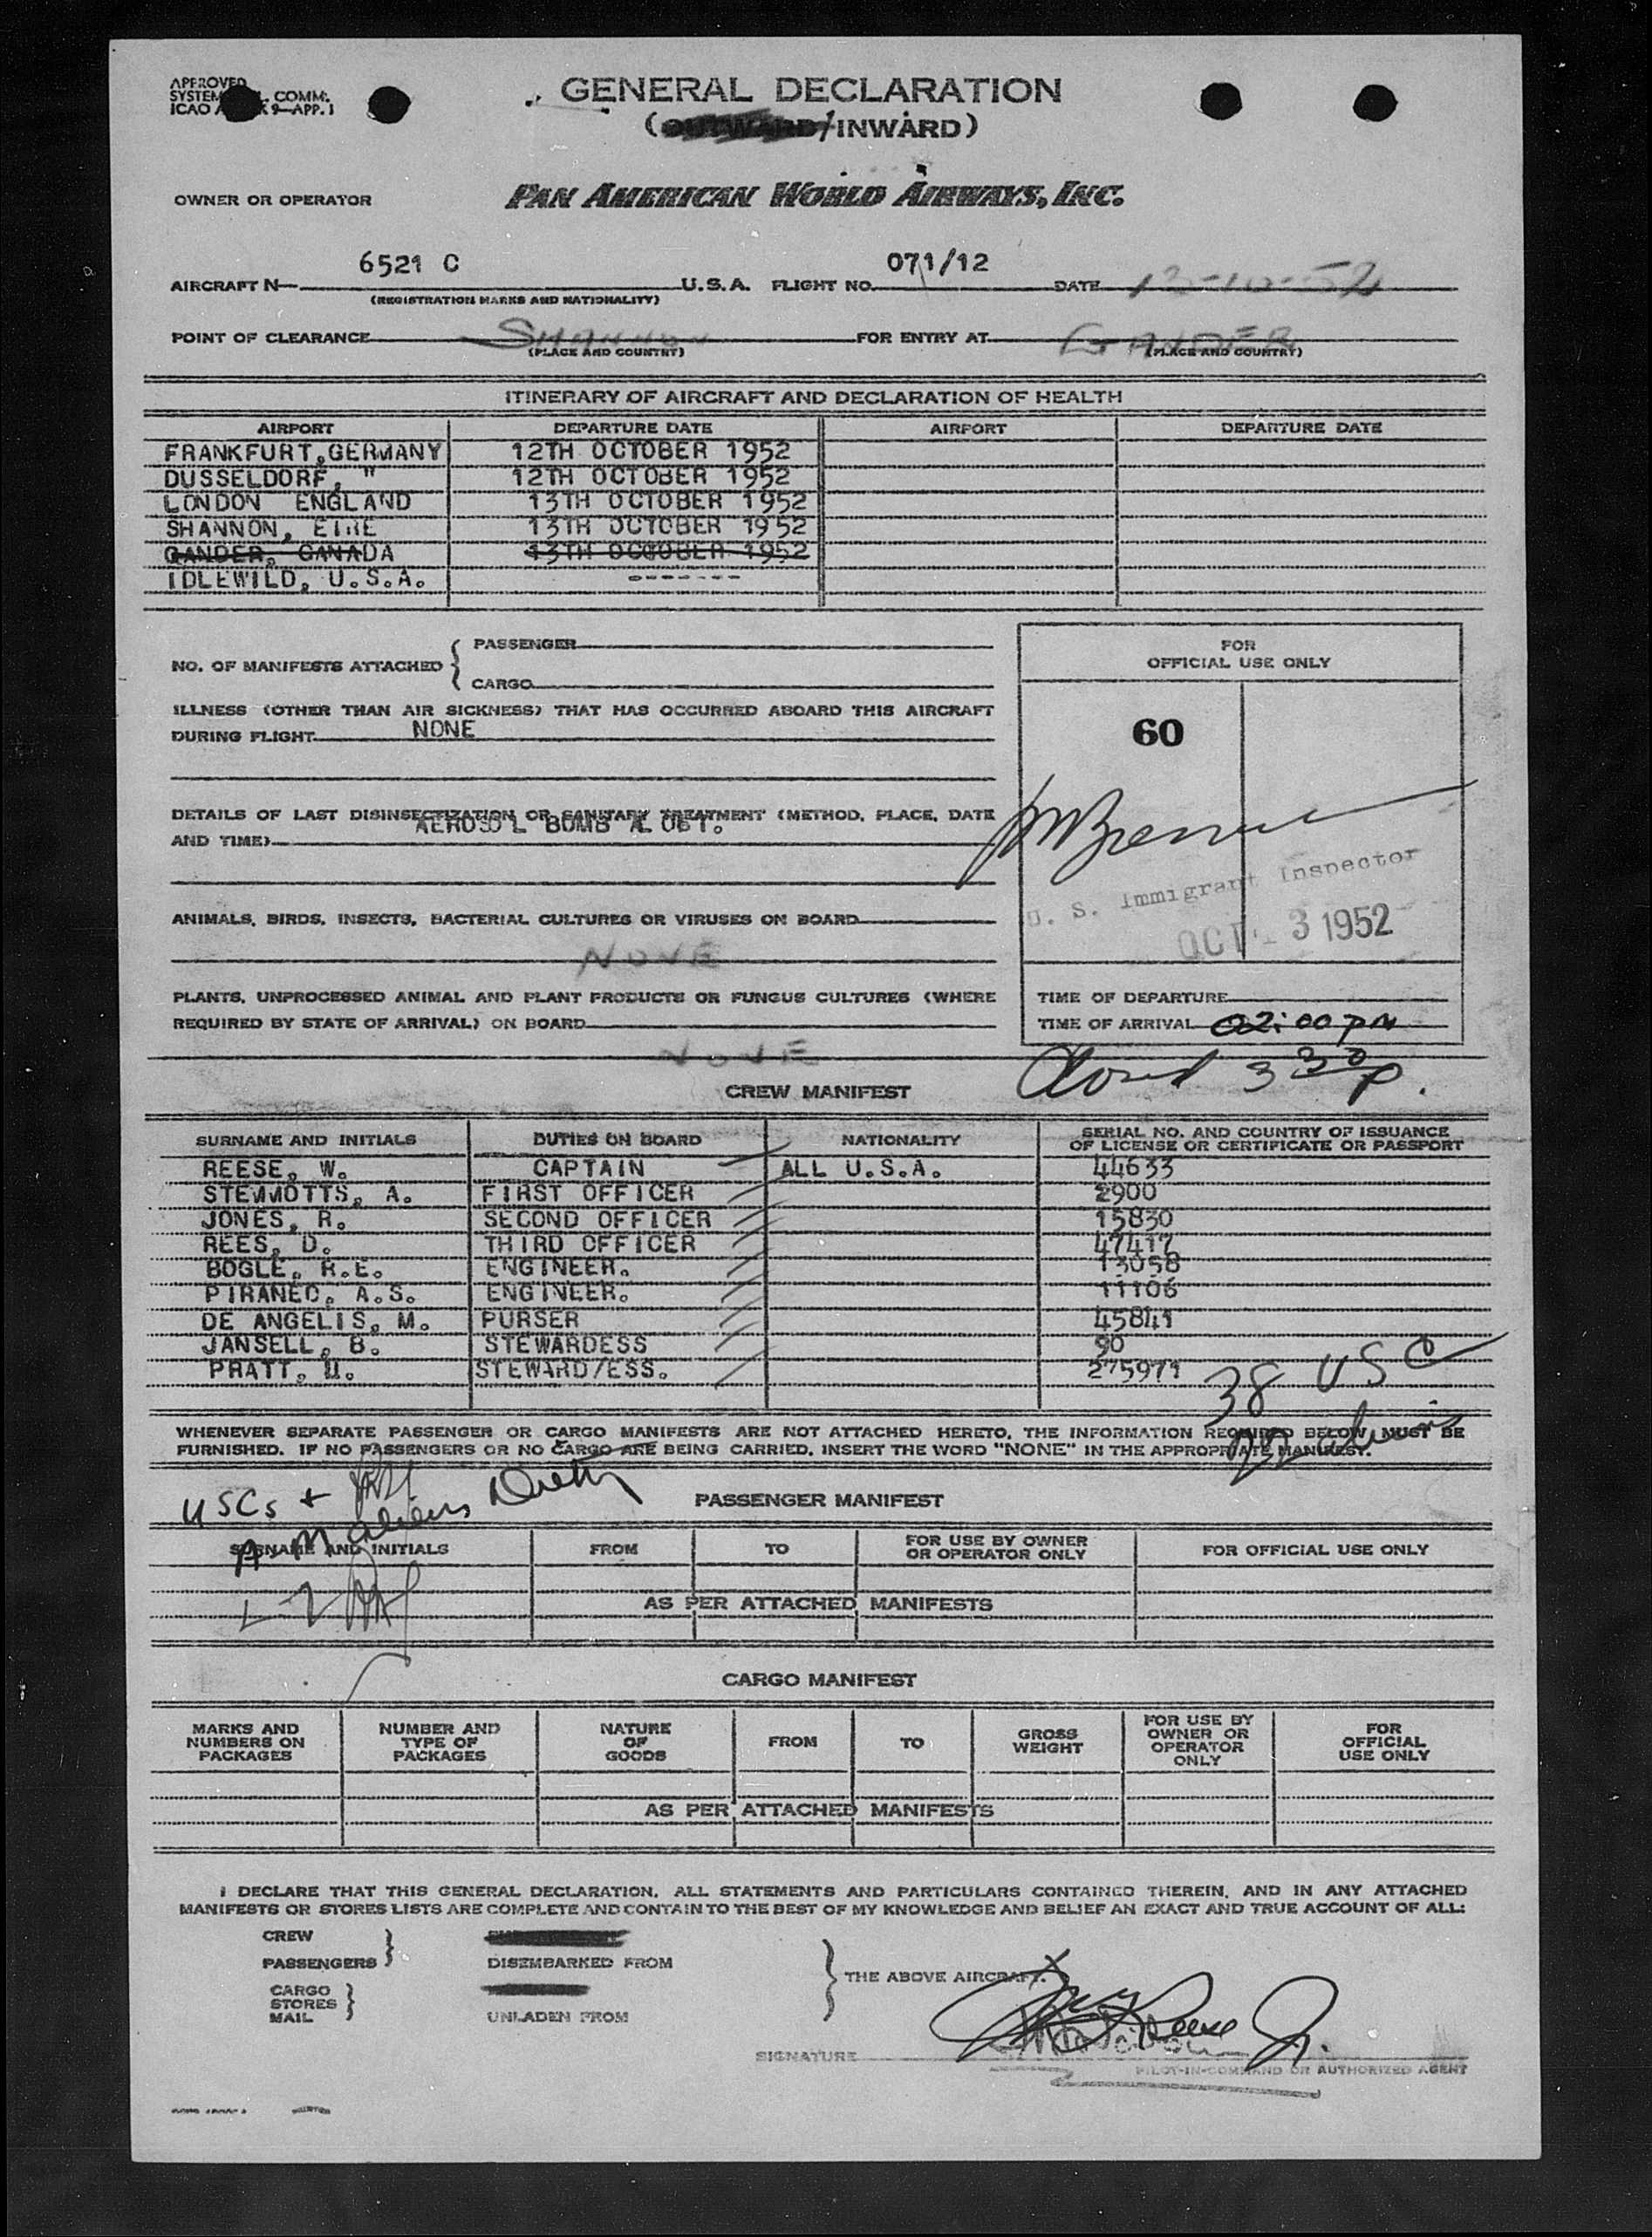 APPROVED
SYSTEM COMM.
ICAO 9—APP. 1
GENERAL DECLARATION
(OUTWARD/INWARD)
OWNER OR OPERATOR PAN AMERICAN WORLD AIRWAYS, INC.
AIRCRAFT N— 6521 C U.S.A. FLIGHT NO. 071/12 DATE 13-10-52
(REGISTRATION MARKS AND NATIONALITY)
POINT OF CLEARANCE SHANNON FOR ENTRY AT GANDER
(PLACE AND COUNTRY) (PLACE AND COUNTRY)
ITINERARY OF AIRCRAFT AND DECLARATION OF HEALTH
AIRPORT DEPARTURE DATE AIRPORT DEPARTURE DATE
FRANKFURT, GERMANY 12TH OCTOBER 1952
DUSSELDORF, " 12TH OCTOBER 1952
LONDON ENGLAND 13TH OCTOBER 1952
SHANNON, EIRE 13TH OCTOBER 1952
GANDER, CANADA 13TH OCTOBER 1952
IDLEWILD, U.S.A. -------
NO. OF MANIFESTS ATTACHED { PASSENGER
CARGO
FOR
OFFICIAL USE ONLY
ILLNESS (OTHER THAN AIR SICKNESS) THAT HAS OCCURRED ABOARD THIS AIRCRAFT
DURING FLIGHT NONE
60
DETAILS OF LAST DISINSECTIZATION OR SANITARY TREATMENT (METHOD, PLACE, DATE
AEROSOL BOMB
AND TIME)
U. S. Immigrant Inspector
ANIMALS, BIRDS, INSECTS, BACTERIAL CULTURES OR VIRUSES ON BOARD
OCT 3 1952
NONE
PLANTS, UNPROCESSED ANIMAL AND PLANT PRODUCTS OR FUNGUS CULTURES (WHERE
REQUIRED BY STATE OF ARRIVAL) ON BOARD
NONE
TIME OF DEPARTURE
TIME OF ARRIVAL 02:00 PM
Closed 3 30 p.
CREW MANIFEST
SURNAME AND INITIALS DUTIES ON BOARD NATIONALITY SERIAL NO. AND COUNTRY OF ISSUANCE
OF LICENSE OR CERTIFICATE OR PASSPORT
REESE, W. CAPTAIN ALL U.S.A. 44633
STEMMOTTS, A. FIRST OFFICER 2900
JONES, R. SECOND OFFICER 15830
REES, D. THIRD OFFICER 47417
BOGLE, R.E. ENGINEER. 13058
PIRANEO, A.S. ENGINEER. 11106
DE ANGELIS, M. PURSER 45841
JANSELL, B. STEWARDESS 90
PRATT, STEWARD/ESS. 275971
38 USC
WHENEVER SEPARATE PASSENGER OR CARGO MANIFESTS ARE NOT ATTACHED HERETO, THE INFORMATION REQUIRED BELOW MUST BE
FURNISHED. IF NO PASSENGERS OR NO CARGO ARE BEING CARRIED, INSERT THE WORD "NONE" IN THE APPROPRIATE MANIFEST.
USCs +
aliens
PASSENGER MANIFEST
SURNAME AND INITIALS FROM TO FOR USE BY OWNER
OR OPERATOR ONLY FOR OFFICIAL USE ONLY
AS PER ATTACHED MANIFESTS
CARGO MANIFEST
MARKS AND
NUMBERS ON
PACKAGES NUMBER AND
TYPE OF
PACKAGES NATURE
OF
GOODS FROM TO GROSS
WEIGHT FOR USE BY
OWNER OR
OPERATOR
ONLY FOR
OFFICIAL
USE ONLY
AS PER ATTACHED MANIFESTS
I DECLARE THAT THIS GENERAL DECLARATION, ALL STATEMENTS AND PARTICULARS CONTAINED THEREIN, AND IN ANY ATTACHED
MANIFESTS OR STORES LISTS ARE COMPLETE AND CONTAIN TO THE BEST OF MY KNOWLEDGE AND BELIEF AN EXACT AND TRUE ACCOUNT OF ALL:
CREW
PASSENGERS } DISEMBARKED FROM
CARGO
STORES
MAIL } UNLADEN FROM
} THE ABOVE AIRCRAFT.
SIGNATURE
PILOT-IN-COMMAND OR AUTHORIZED AGENT